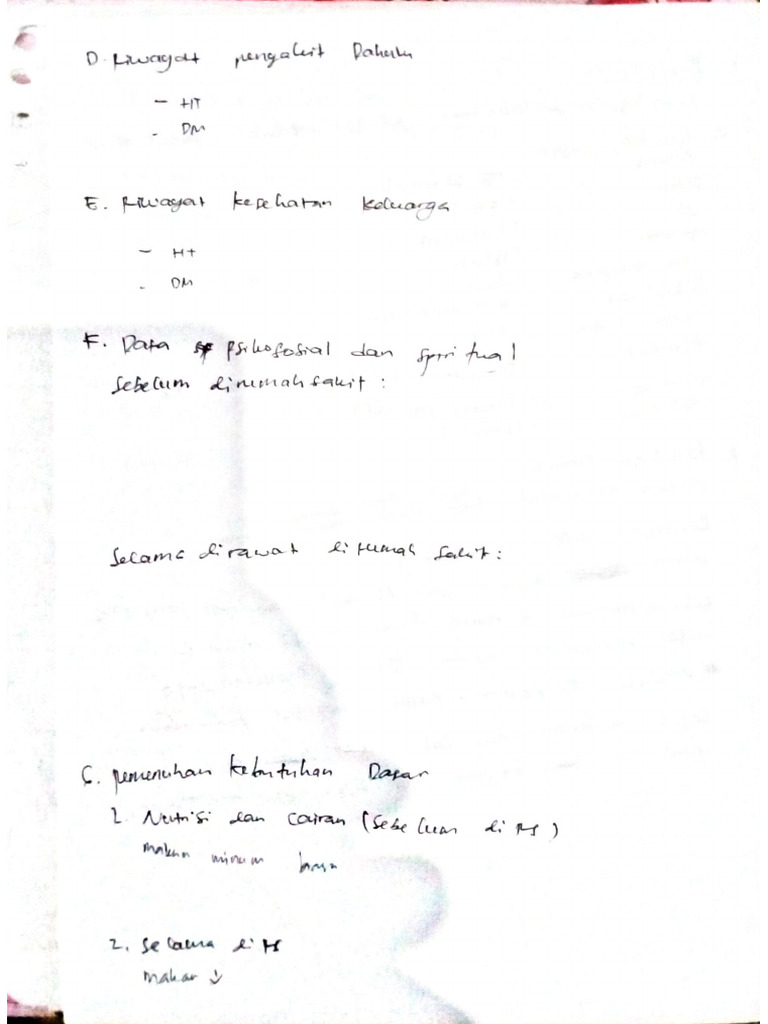 D. Riwayat pengakit Dahulu
- HT
- DM
E. Riwayat kesehatan keluarga
- HT
- DM
F. Data psikososial dan spiritual
sebelum dirumah sakit :
Selama dirawat di rumah sakit :
G. pemenuhan kebutuhan Dasar
1. Nutrisi dan cairan (sebelum di RS)
makan minum
2. selama di RS
makan ↓